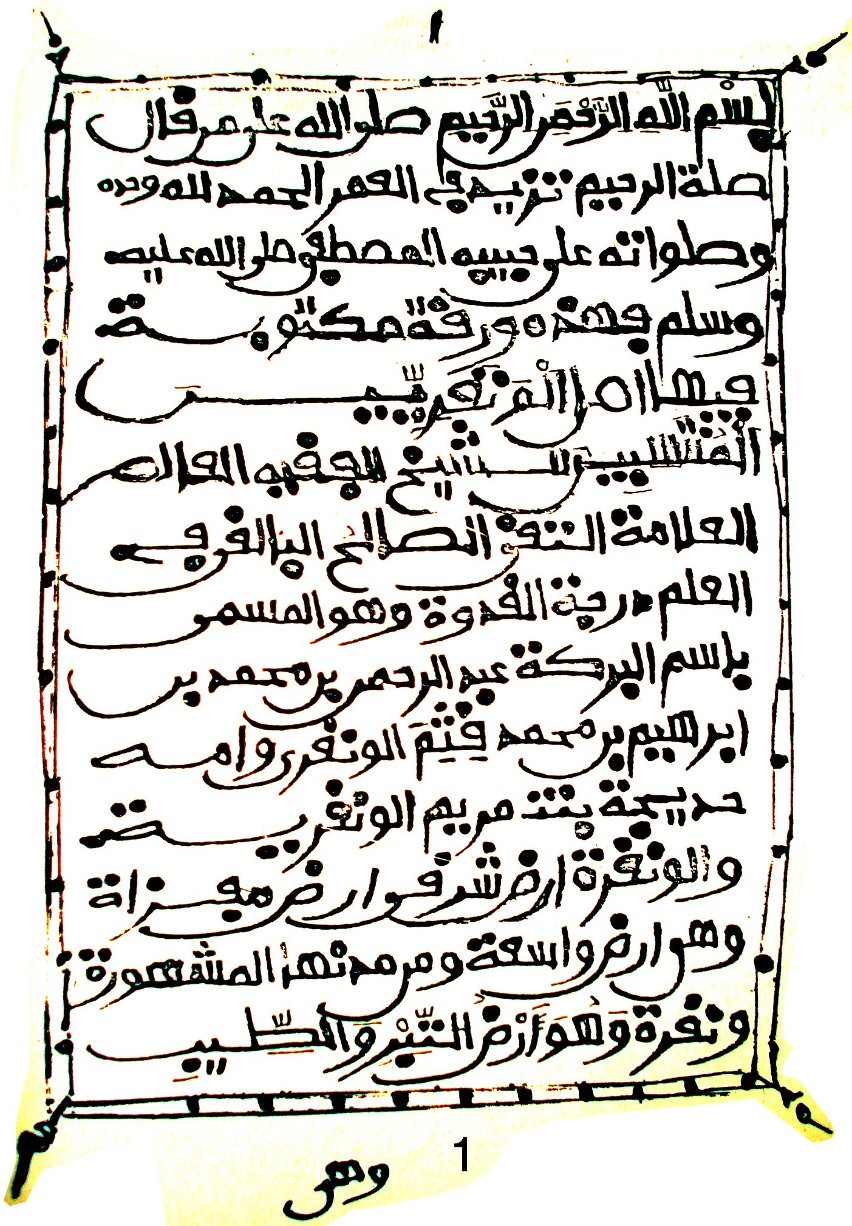 ١
بِسْمِ اللَّهِ الرَّحْمَنِ الرَّحِيمِ صلى الله على من قال
صلة الرحيم تزيد في العمر الحمد لله وحده
وصلواته على حبيبه المصطفى صلى الله عليه
وسلم فهذه ورقة مكتوبة
فيها اصل الْوَنْغَرِيِّين
الْمُنْتَسِبِين للشيخ الفقيه العالم
العلامة التقي الصالح البالغ في
العلم درجة القدوة وهو المسمى
باسم البركة عبد الرحمن بن محمد بن
ابرهيم بن محمد قِثِمَ الونغري وامه
خديجة بنت مريم الونغرية
والونغرة ارض شرف وارض مفزاة
وهو ارض واسعة ومن مدنها المشهورة
ونغرة وَهُوَ أَرْضُ التِّبْرِ وَالطِّيبِ
1
وهى